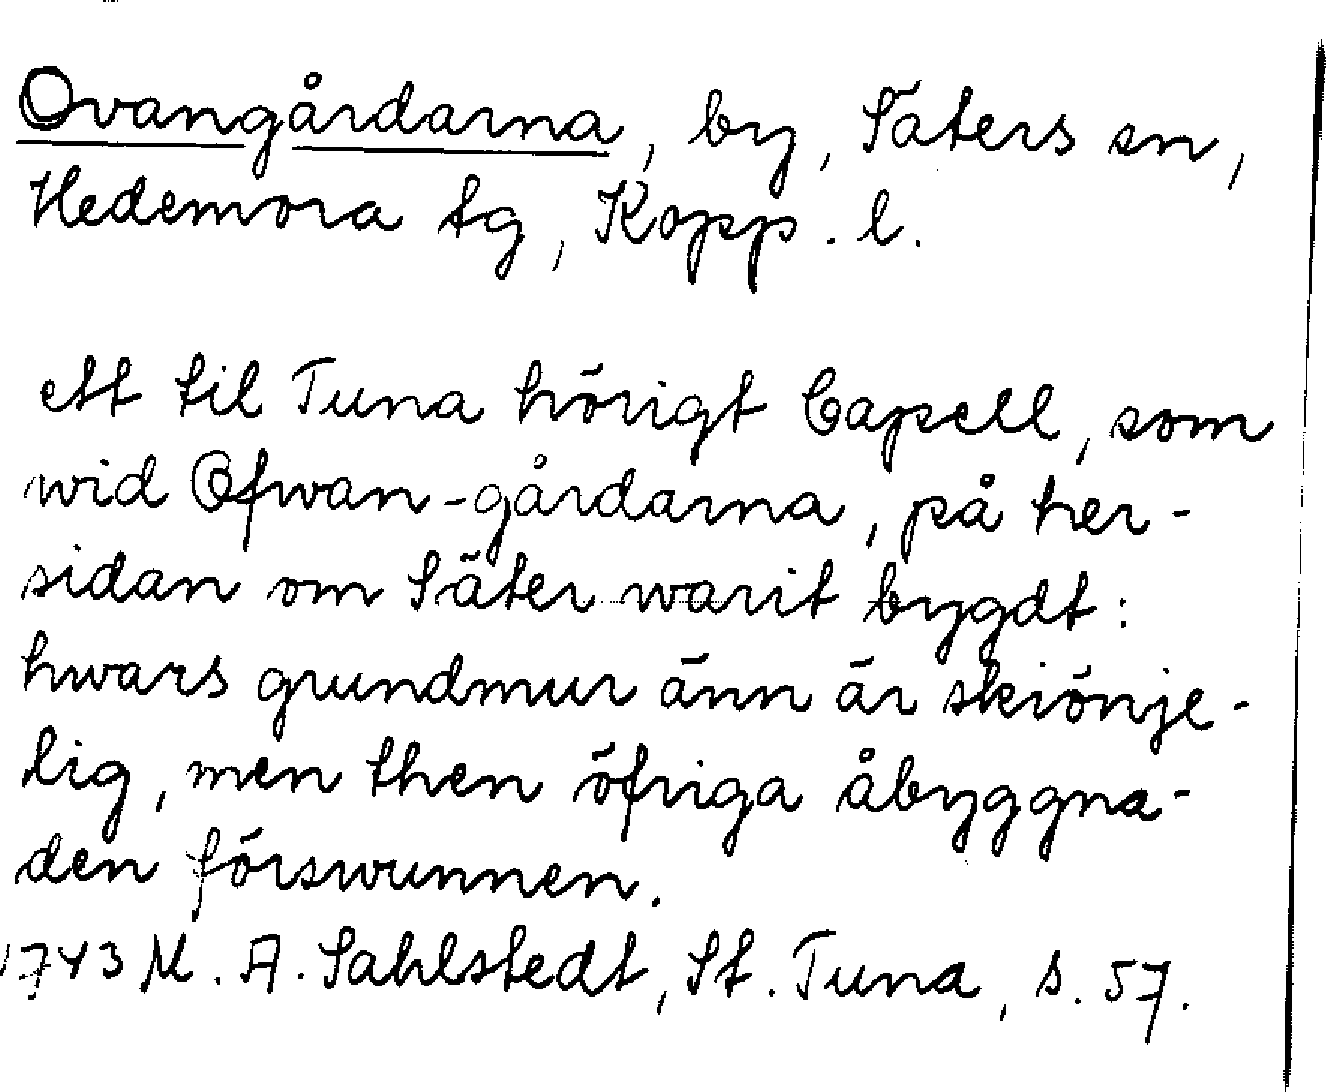 Ovangårdarna, by, Säters sn,
Hedemora tg, Kopp. l.
ett til Tuna hörigt Capell, som
wid Ofwan-gårdarna, på her-
sidan om Säter warit bygdt:
hwars grundmur änn är skiönje-
lig, men then öfriga åbyggna-
den förswunnen.
1743 M. A. Sahlstedt, St. Tuna, s. 57.